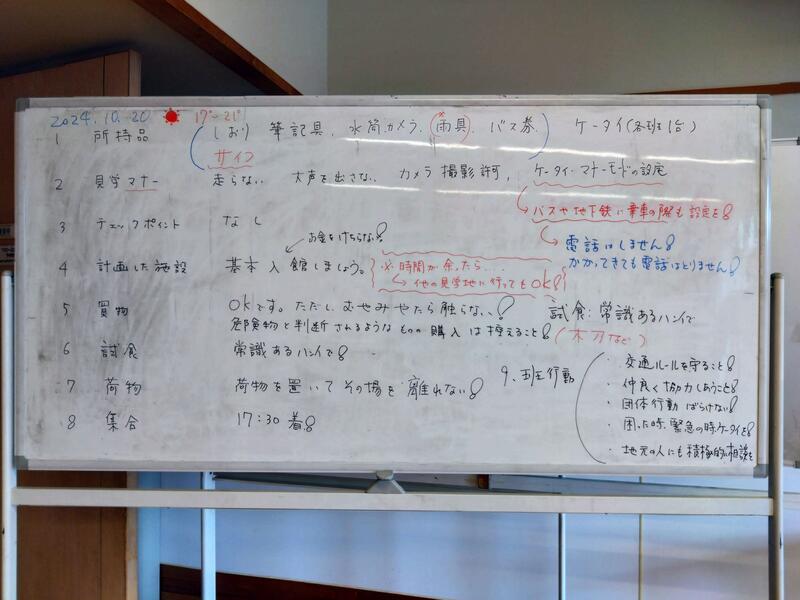 2024.10.20 17°-21°
1 所持品 (しおり 筆記具、水筒 カメラ、雨具、バス券) ケータイ(各班1台)
サイフ
2 見学マナー 走らない 大声を出さない カメラ撮影許可、ケータイ・マナーモードの設定
→バスや地下鉄に乗車の際も設定を!
3 チェックポイント なし
→電話はしません!
かかってきても電話はとりません!
お金をけちらない!
4 計画した施設 基本入館しましょう。 ※時間が余ったら...
→他の見学地に行ってもOK!
5 買物 OKです。ただし、むやみやたら触らない! 試食:常識あるハンイで
不要物と判断されるようなものの購入は控えること! (木刀など)
6 試食 常識あるハンイで!
7 荷物 荷物を置いてその場を離れない!
8 集合 17:30着!
9、班行動
・交通ルールを守ること!
・仲良く協力しあうこと!
・団体行動 ばらけない!
・困った時、緊急の時、ケータイを!
・地元の人にも積極的に相談を